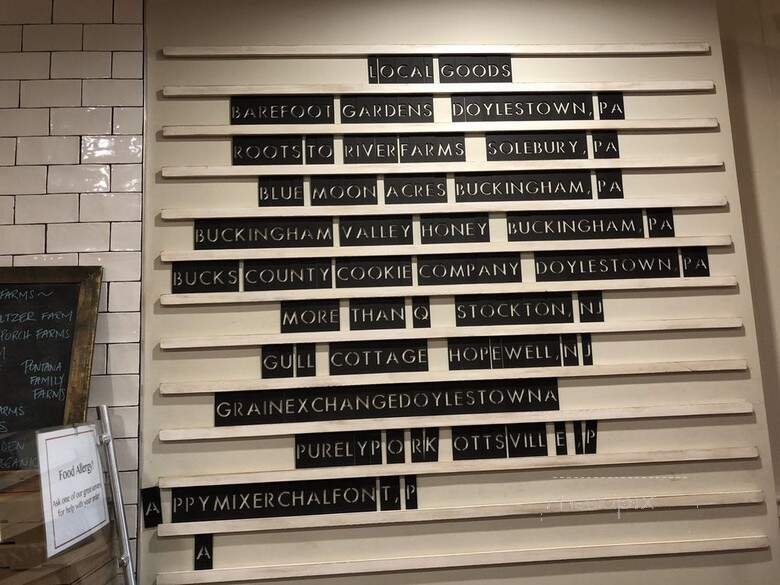 LOCAL GOODS
BAREFOOT GARDENS DOYLESTOWN, PA
ROOTS TO RIVER FARMS SOLEBURY, PA
BLUE MOON ACRES BUCKINGHAM, PA
BUCKINGHAM VALLEY HONEY BUCKINGHAM, PA
BUCKS COUNTY COOKIE COMPANY DOYLESTOWN, PA
MORE THAN Q STOCKTON, NJ
GULL COTTAGE HOPEWELL, NJ
GRAINEXCHANGEDOYLESTOWNA
PURELYPORK OTTSVILLE, P
A PPYMIXERCHALFONT, P
A
FARMS ~
LTZER FARM
PORCH FARMS
FAMILY
FARMS
ARMS
S
DEN
RGANIC
Food Allergy?
Ask one of our great servers
for help with your order!